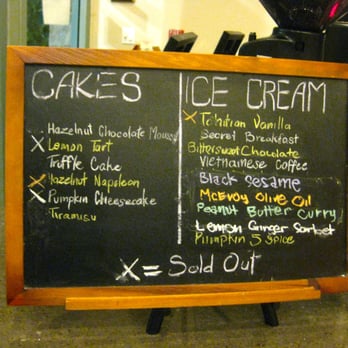 CAKES
Hazelnut Chocolate Mousse
X Lemon Tart
Truffle Cake
X Hazelnut Napoleon
X Pumpkin Cheesecake
Tiramisu
ICE CREAM
X Tahitian Vanilla
Secret Breakfast
Bittersweet Chocolate
Vietnamese Coffee
Black Sesame
McEvoy Olive Oil
Peanut Butter Curry
Lemon Ginger Sorbet
Pumpkin 5 Spice
X = Sold Out